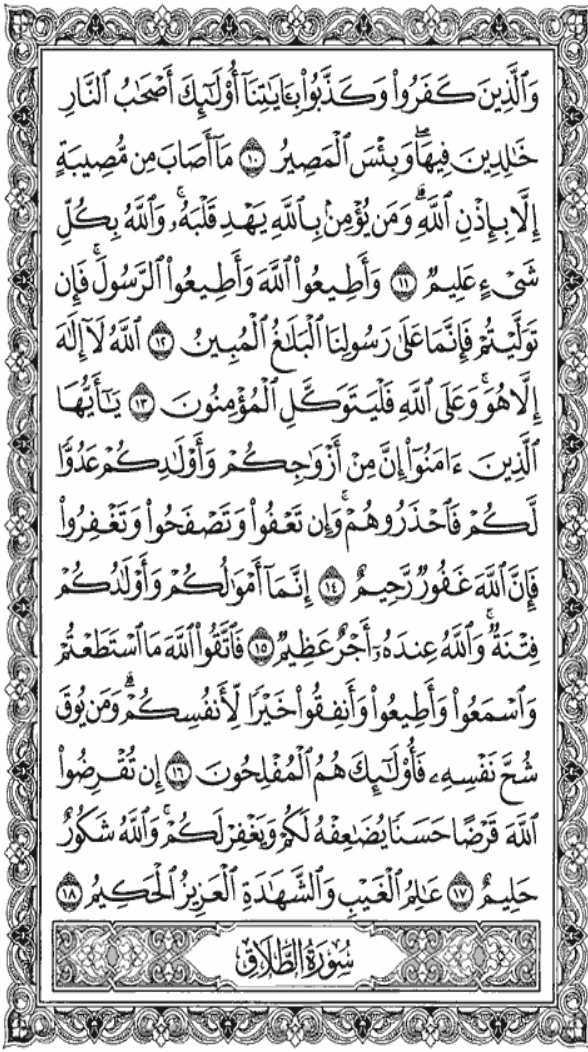 وَالَّذِينَ كَفَرُوا۟ وَكَذَّبُوا۟ بِـَٔايَٰتِنَآ أُو۟لَٰٓئِكَ أَصْحَٰبُ ٱلنَّارِ
خَٰلِدِينَ فِيهَا ۖ وَبِئْسَ ٱلْمَصِيرُ ١٠ مَآ أَصَابَ مِن مُّصِيبَةٍ
إِلَّا بِإِذْنِ ٱللَّهِ ۗ وَمَن يُؤْمِنۢ بِٱللَّهِ يَهْدِ قَلْبَهُۥ ۚ وَٱللَّهُ بِكُلِّ
شَىْءٍ عَلِيمٌ ١١ وَأَطِيعُوا۟ ٱللَّهَ وَأَطِيعُوا۟ ٱلرَّسُولَ ۚ فَإِن
تَوَلَّيْتُمْ فَإِنَّمَا عَلَىٰ رَسُولِنَا ٱلْبَلَٰغُ ٱلْمُبِينُ ١٢ ٱللَّهُ لَآ إِلَٰهَ
إِلَّا هُوَ ۚ وَعَلَى ٱللَّهِ فَلْيَتَوَكَّلِ ٱلْمُؤْمِنُونَ ١٣ يَٰٓأَيُّهَا
ٱلَّذِينَ ءَامَنُوٓا۟ إِنَّ مِنْ أَزْوَٰجِكُمْ وَأَوْلَٰدِكُمْ عَدُوًّا
لَّكُمْ فَٱحْذَرُوهُمْ ۚ وَإِن تَعْفُوا۟ وَتَصْفَحُوا۟ وَتَغْفِرُوا۟
فَإِنَّ ٱللَّهَ غَفُورٌ رَّحِيمٌ ١٤ إِنَّمَآ أَمْوَٰلُكُمْ وَأَوْلَٰدُكُمْ
فِتْنَةٌ ۚ وَٱللَّهُ عِندَهُۥٓ أَجْرٌ عَظِيمٌ ١٥ فَٱتَّقُوا۟ ٱللَّهَ مَا ٱسْتَطَعْتُمْ
وَٱسْمَعُوا۟ وَأَطِيعُوا۟ وَأَنفِقُوا۟ خَيْرًا لِّأَنفُسِكُمْ ۗ وَمَن يُوقَ
شُحَّ نَفْسِهِۦ فَأُو۟لَٰٓئِكَ هُمُ ٱلْمُفْلِحُونَ ١٦ إِن تُقْرِضُوا۟
ٱللَّهَ قَرْضًا حَسَنًا يُضَٰعِفْهُ لَكُمْ وَيَغْفِرْ لَكُمْ ۚ وَٱللَّهُ شَكُورٌ
حَلِيمٌ ١٧ عَٰلِمُ ٱلْغَيْبِ وَٱلشَّهَٰدَةِ ٱلْعَزِيزُ ٱلْحَكِيمُ ١٨
سُورَةُ الطَّلَاقِ